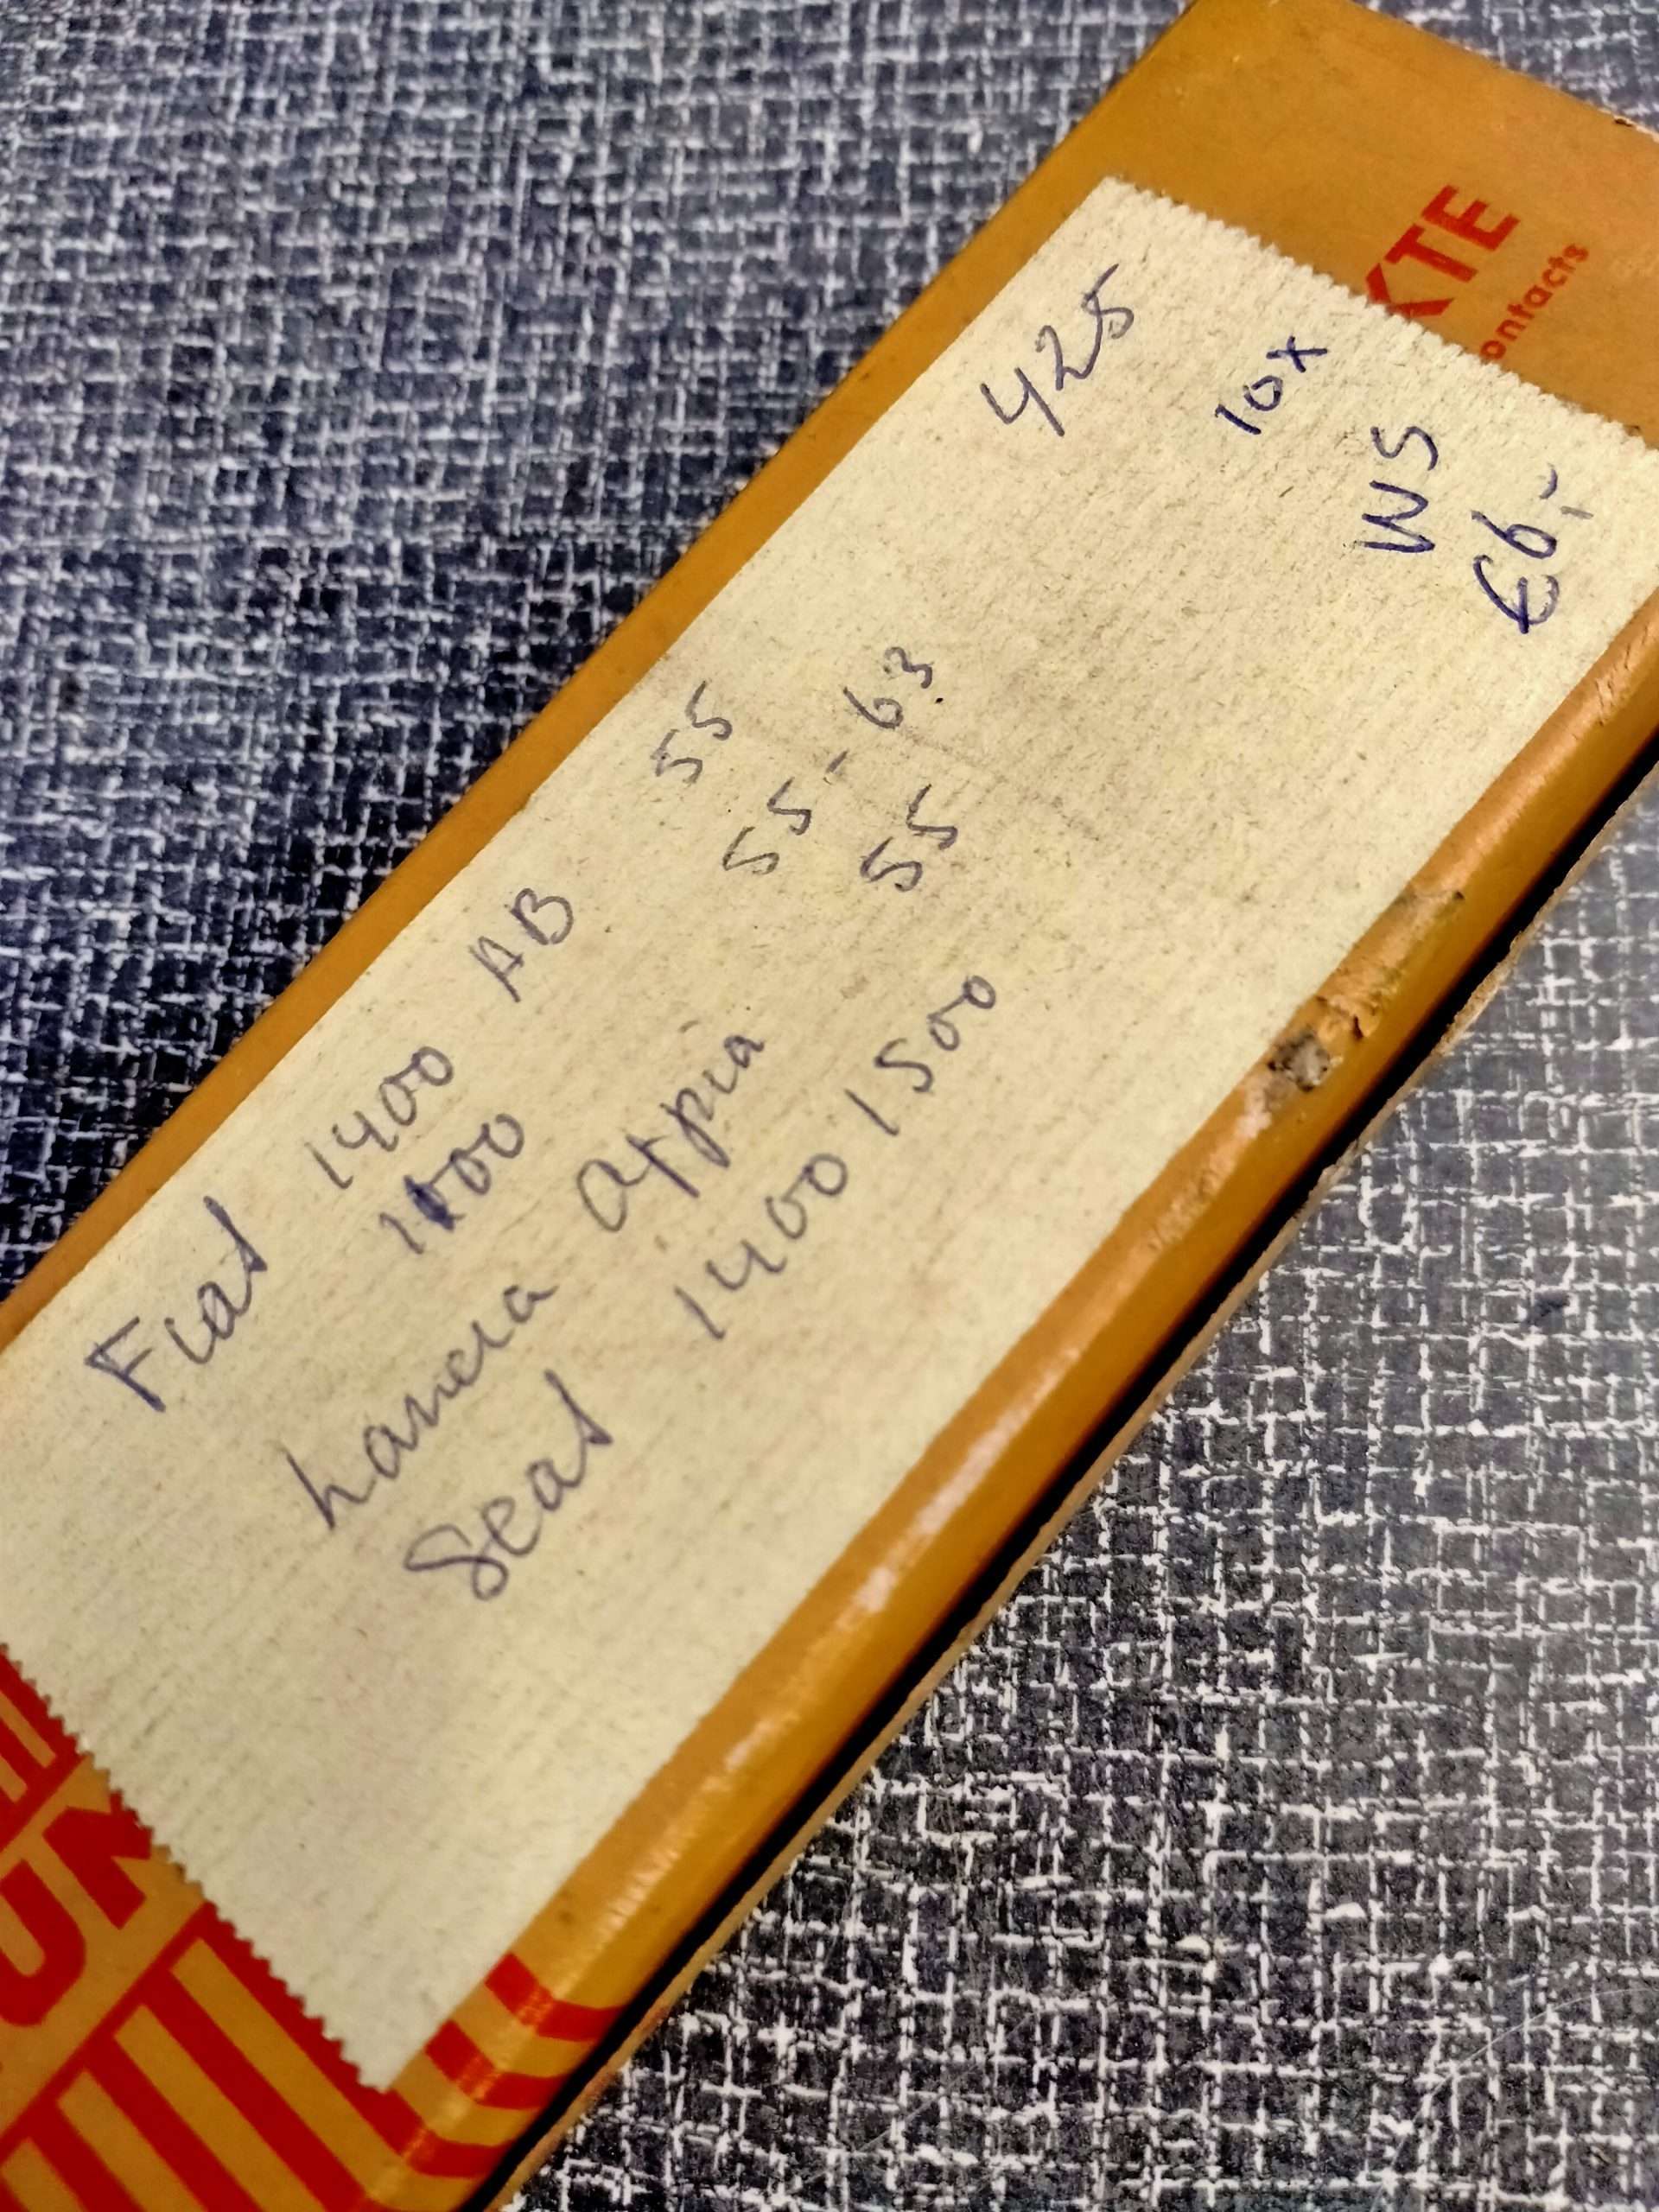 KTE
ontacts
425
10x
WS
€6,-
Fiat 1400 AB 55
1100 55-63
Lancia Appia 55
Seat 1400 1500
UN